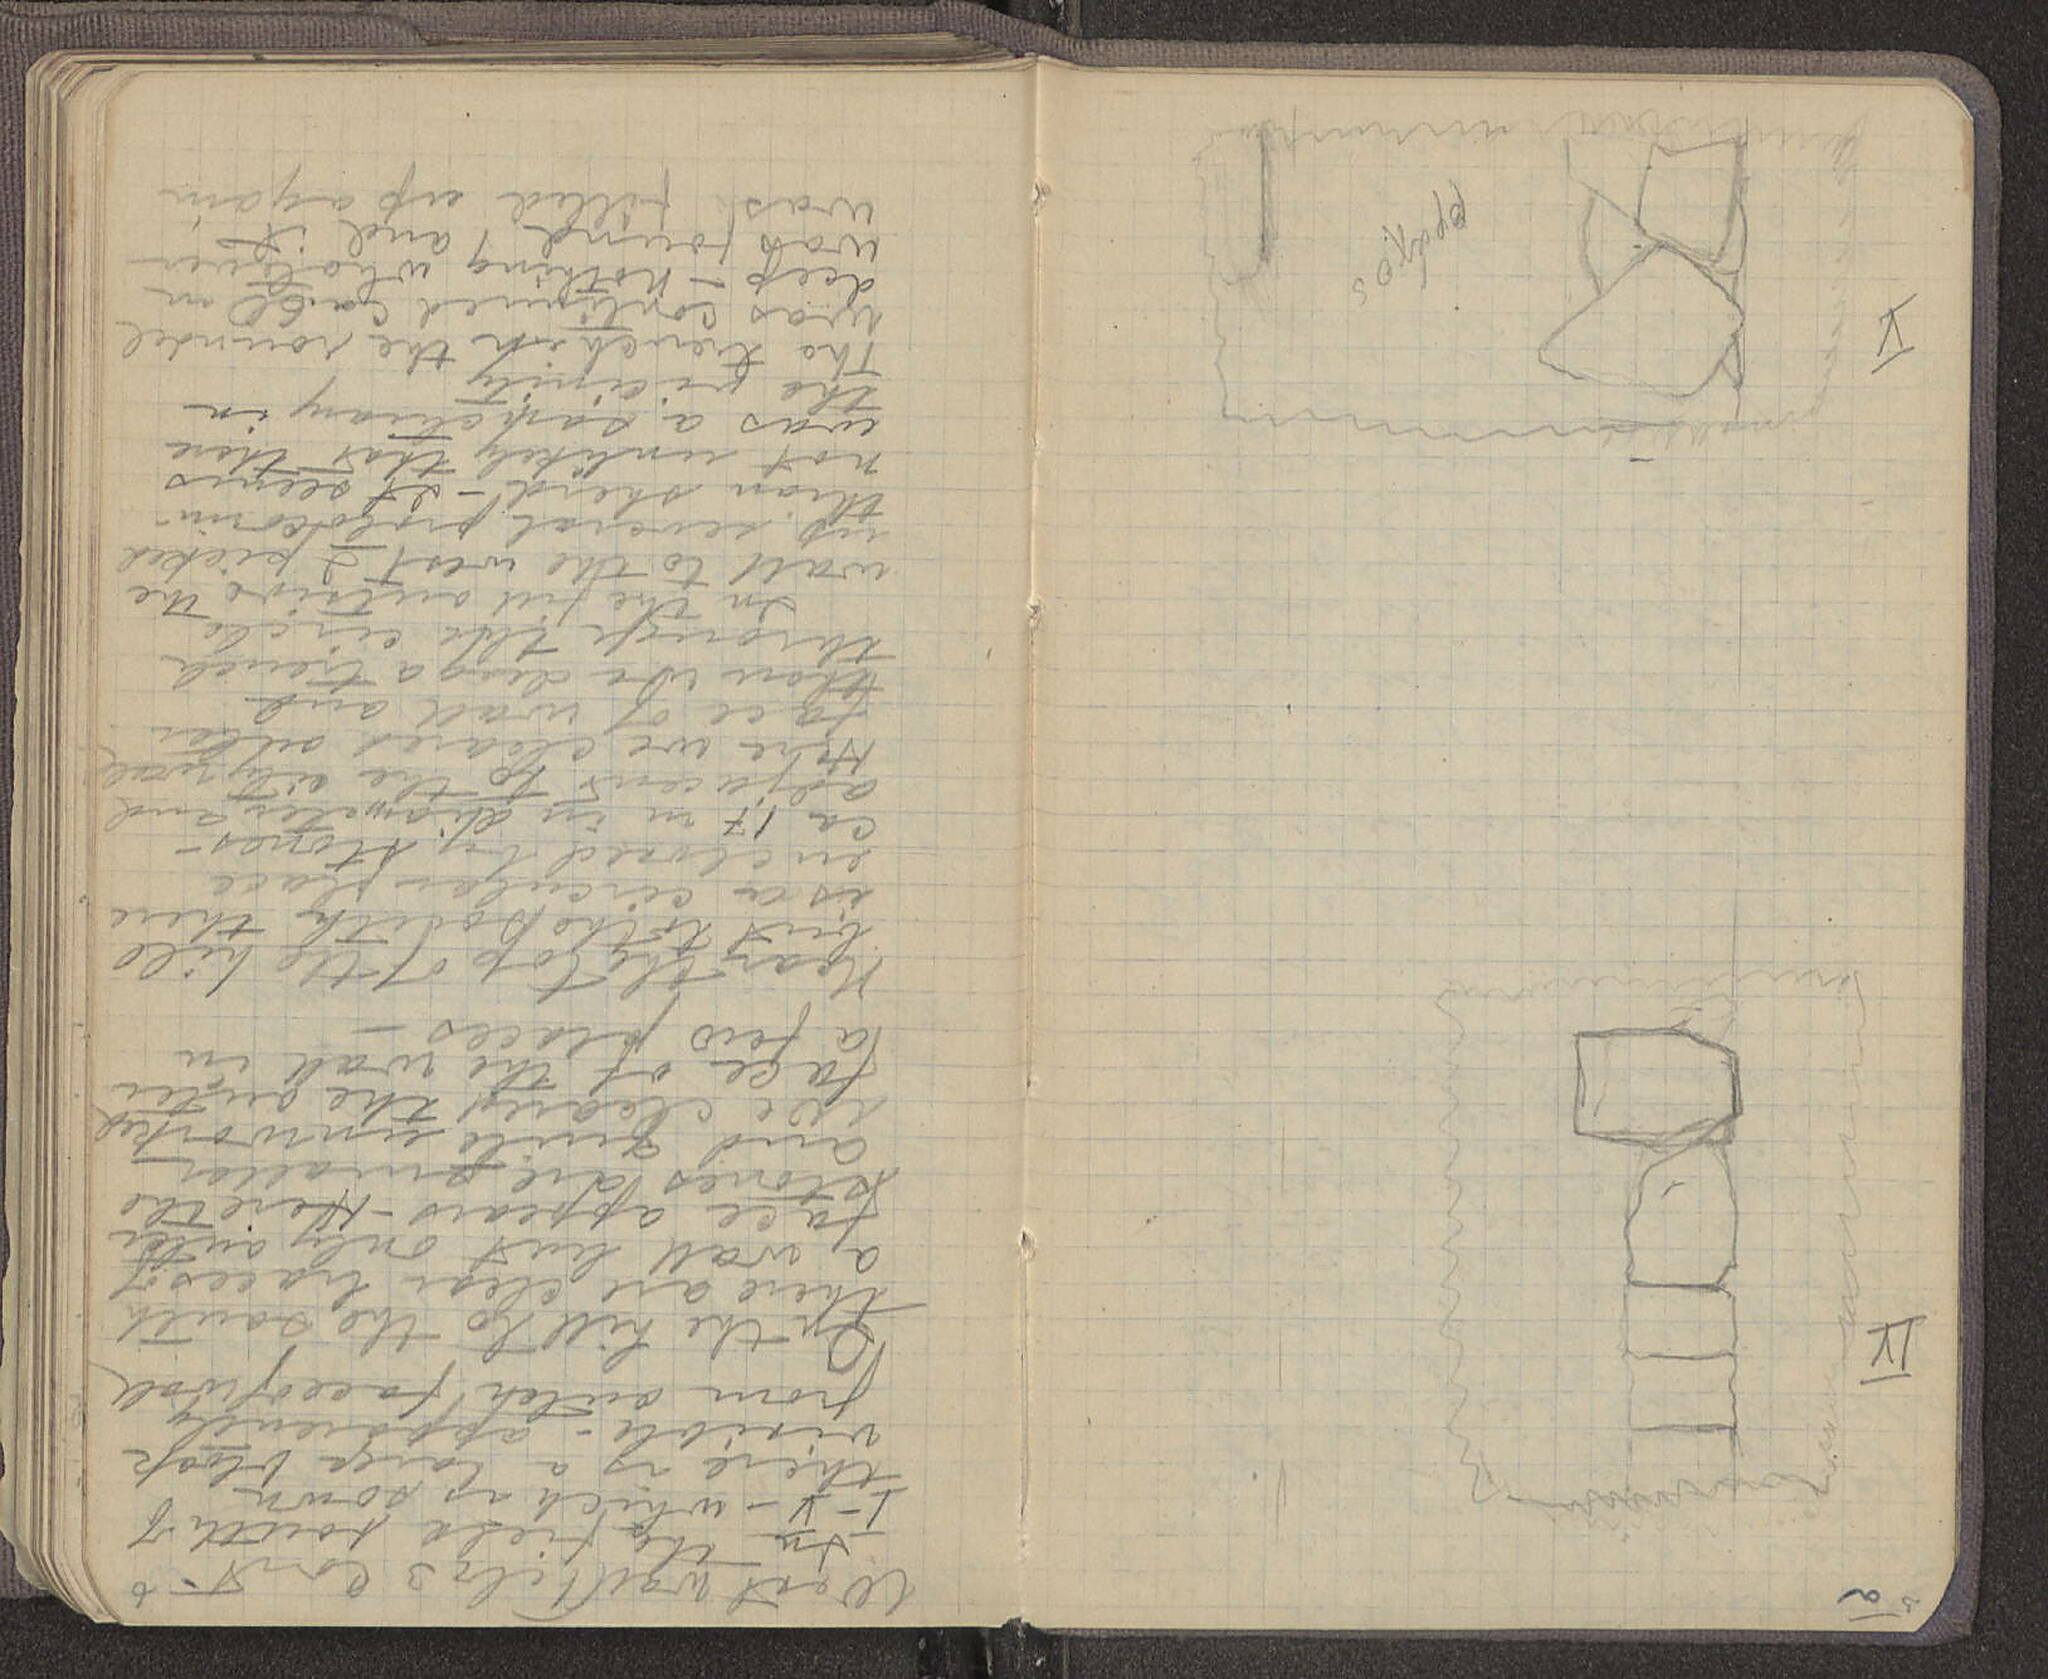 West wall Feb 3 cont.
In the field south of
I-V - which is sown
there is a large block
visible - apparently
from outer face of wall
On the hill to the south
there are clear traces of
a wall but only outer
face appears - Here the
stones are smaller
and quite unworked
we cleared the outer
face of the wall in
a few places -
Near the top of the hill
but to the south there
is a circular place
enclosed by stones -
ca 17 m in diameter and
adjacent to the city wall
Here we cleared outer
face of wall and
then we dug a trench
through the circle
In the fill outside the
wall to the west I picked
up several protocorin-
thian sherds - It seems
not unlikely that there
was a sanctuary in
the vicinity
The trench in the roundel
was continued ca 60 m
deep - nothing whatever
was found, and it
was filled up again
a
V
βράχος
VI